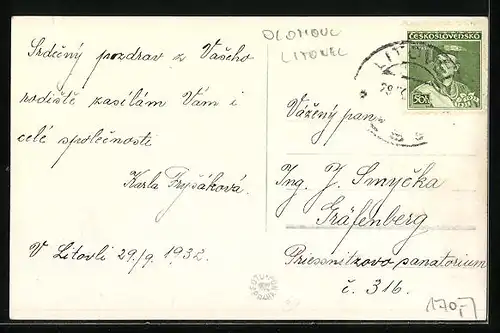 OLOMOUC
LITOVEL
ČESKOSLOVENSKO
50h
Srdečný pozdrav z Vašeho
rodiště zasílám Vám i
celé společnosti
Karla Fryšáková.
V Litovli 29/9. 1932.
Vážený pan
Ing. J. Smyčka
Gräfenberg
Priessnitzovo sanatorium
č. 316.
170,-